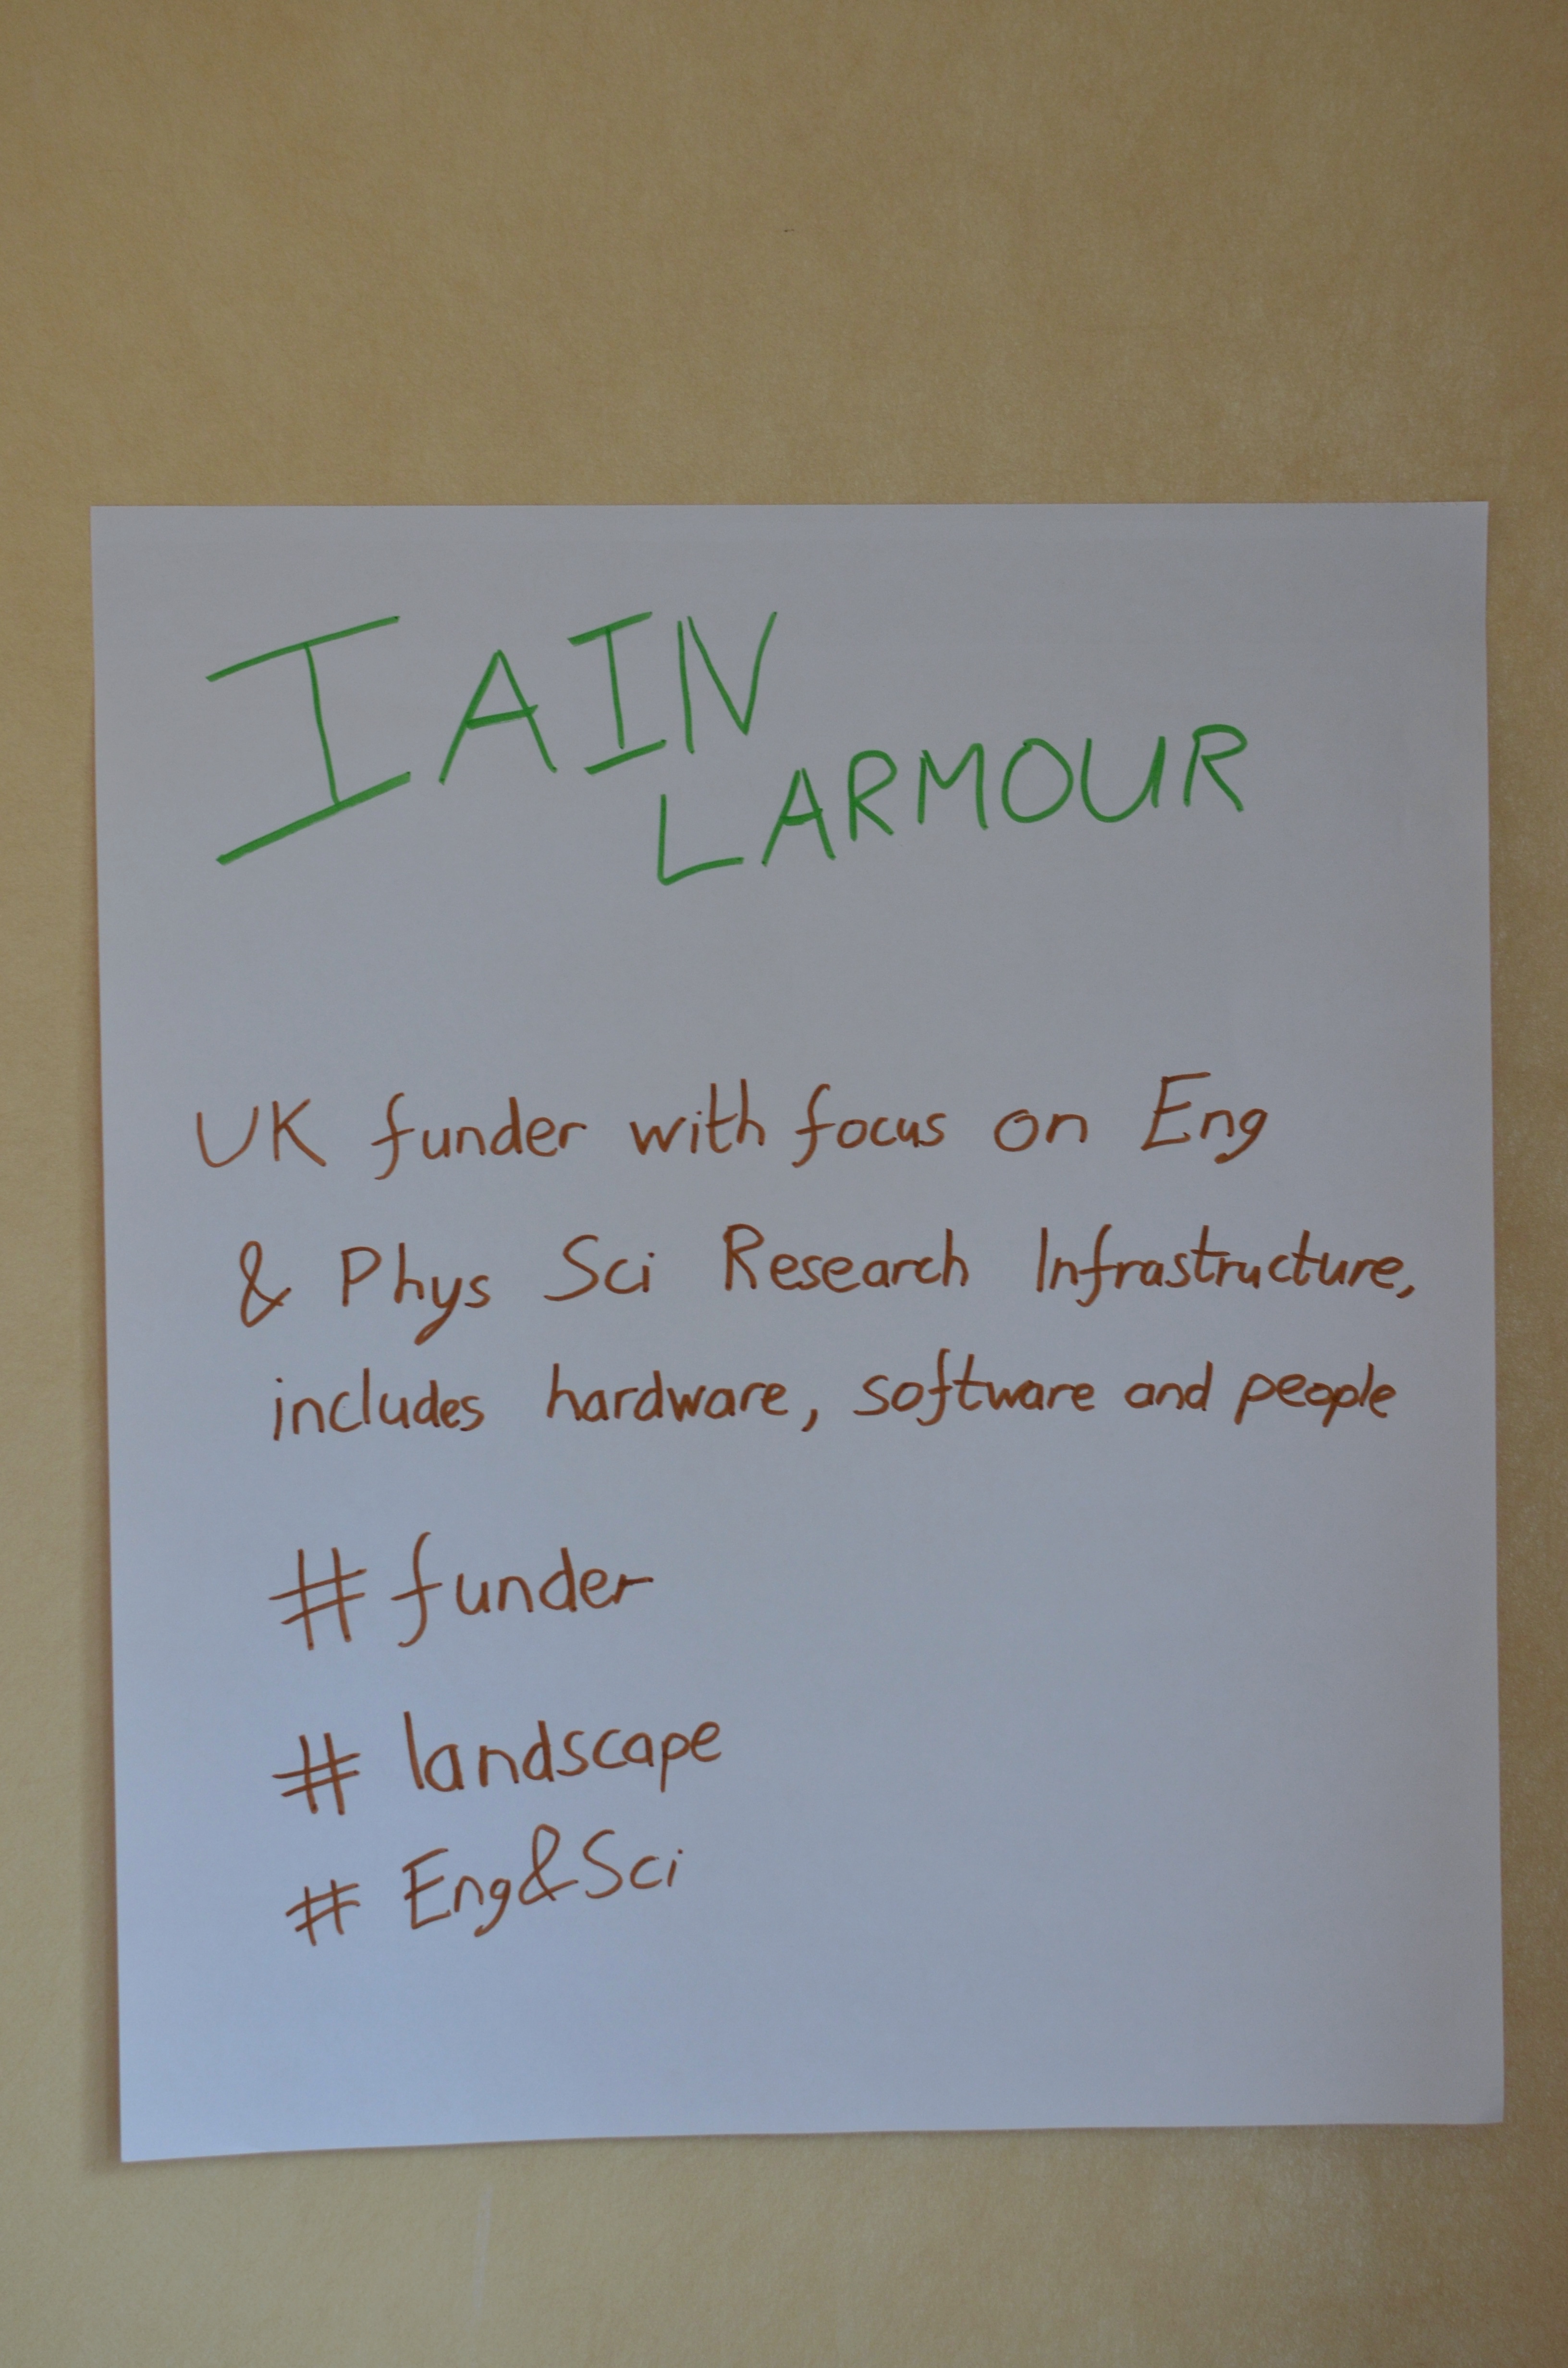 IAIN
LARMOUR
UK funder with focus on Eng
& Phys Sci Research Infrastructure,
includes hardware, software and people
# funder
# landscape
# Eng&Sci